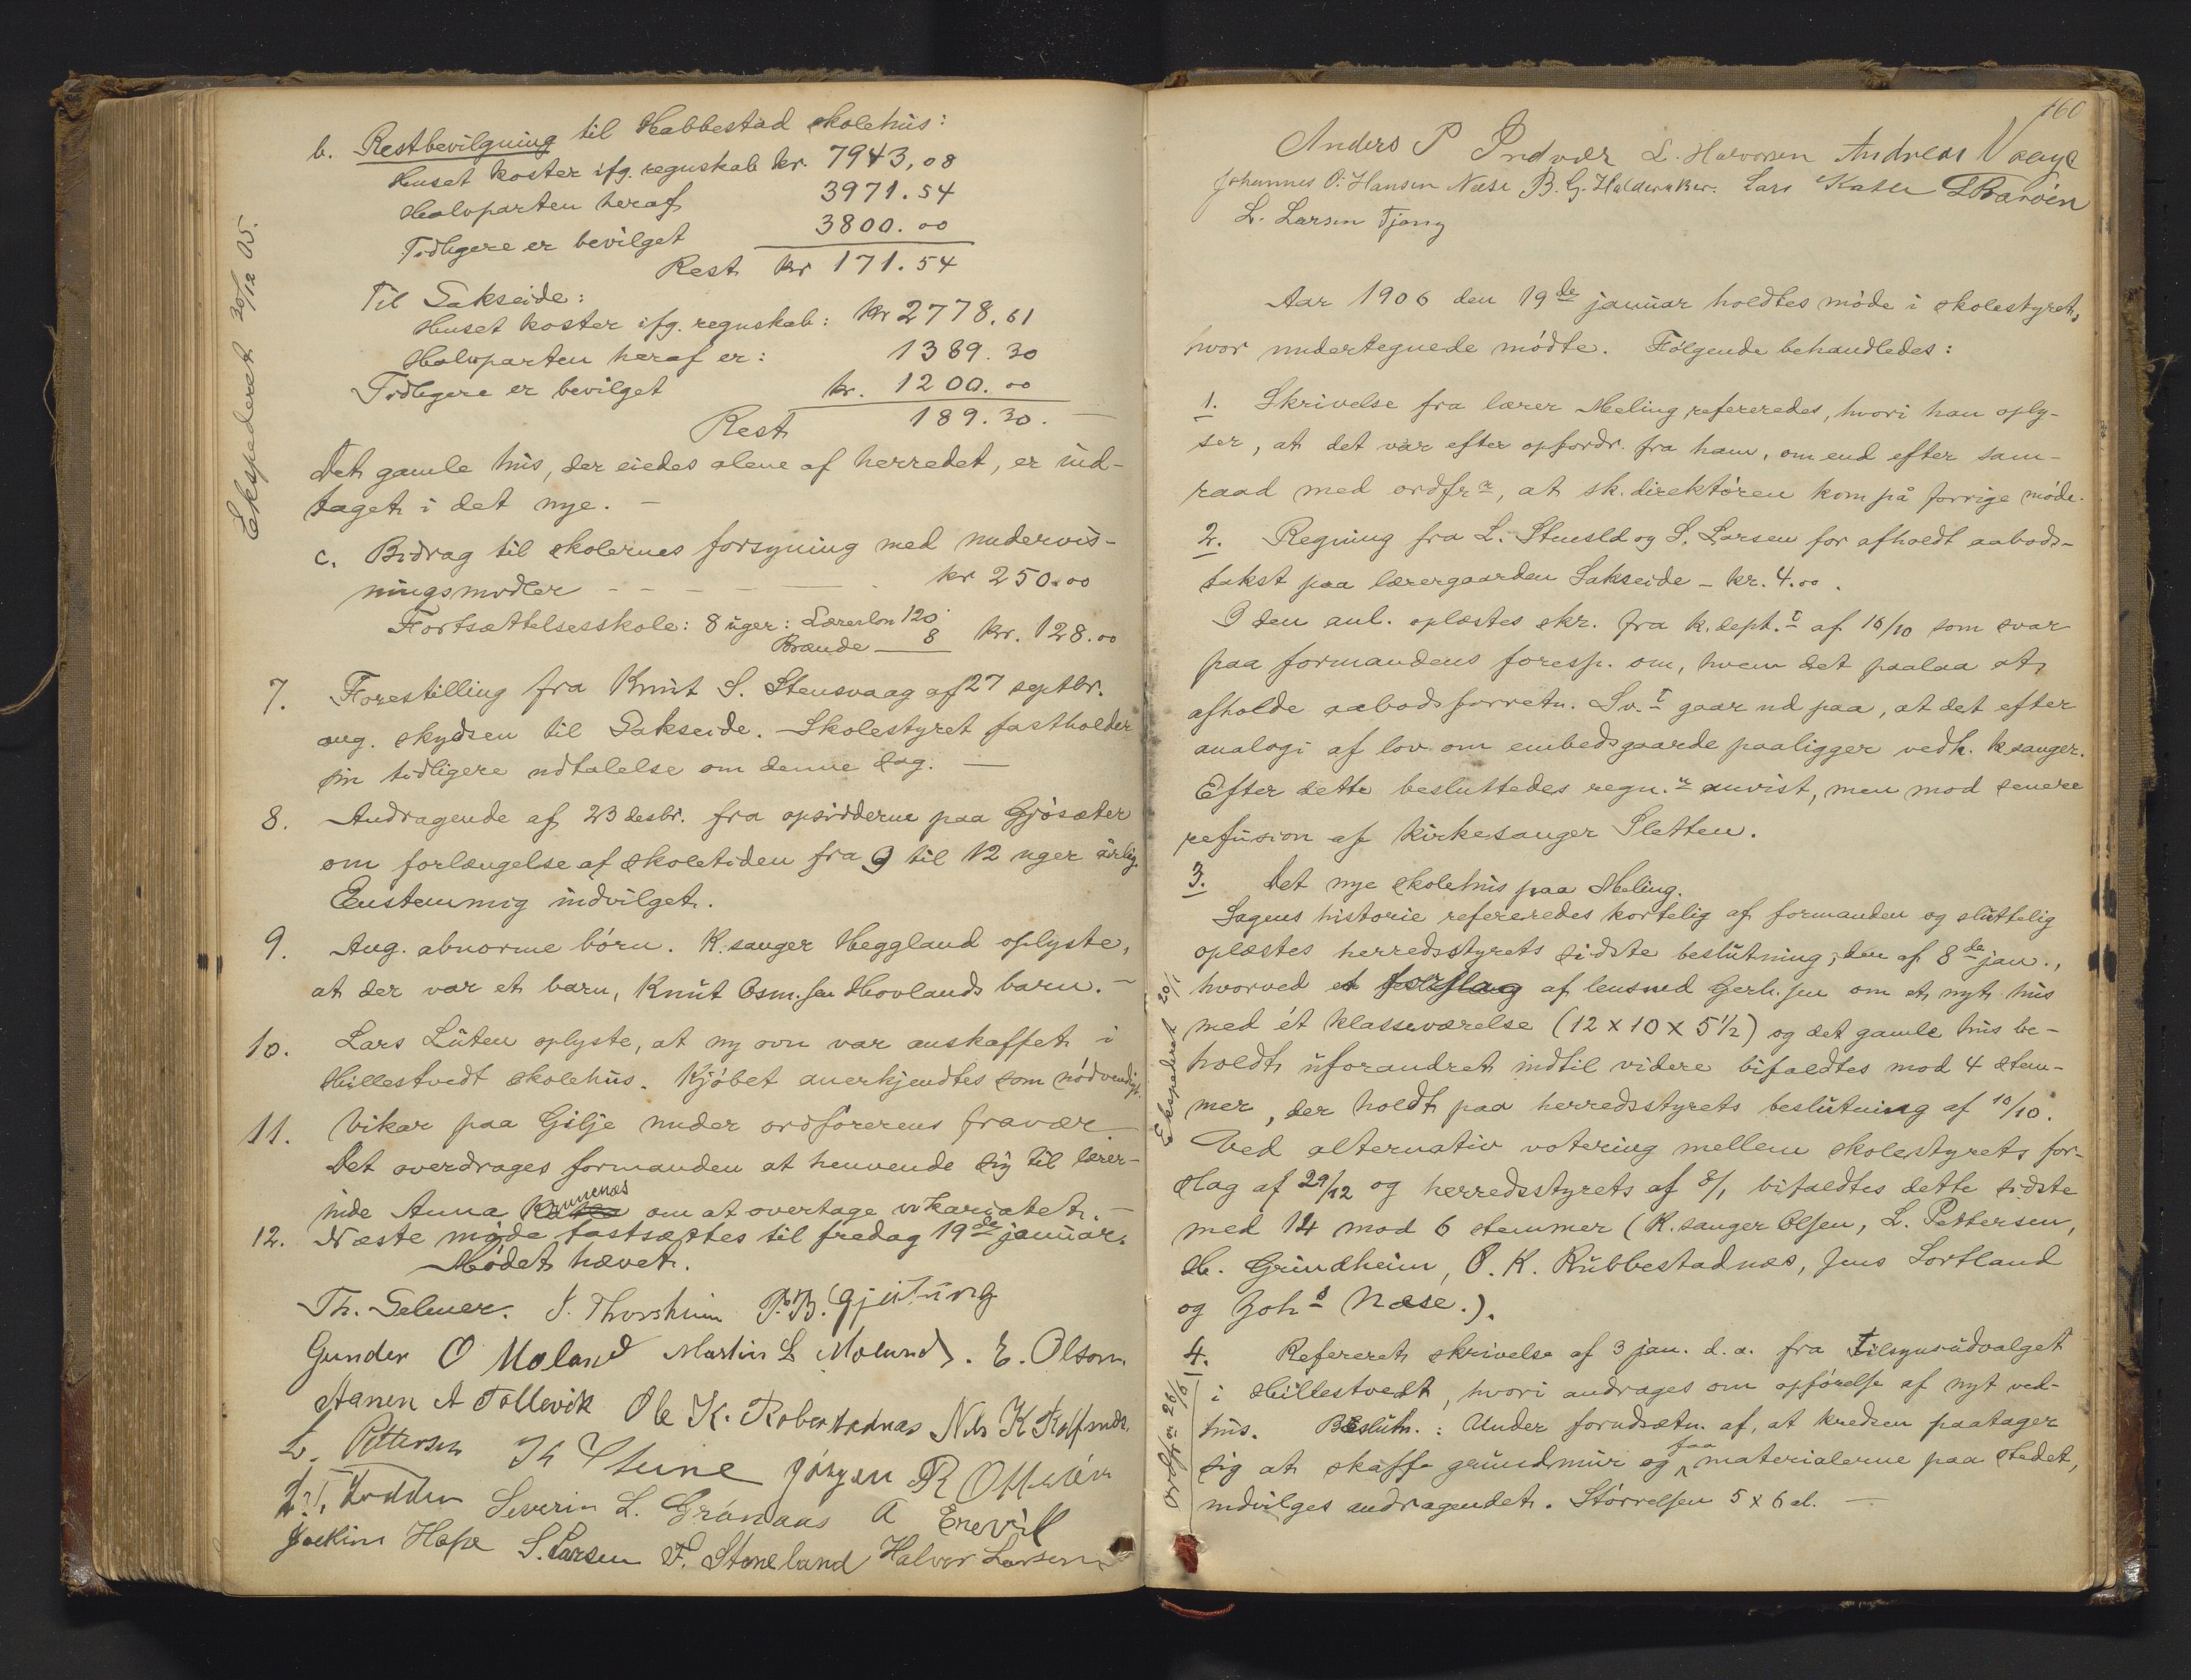 b. Restbevilgning til Habbestad skolehus:
Huset koster ifg. regnskab kr. 7943,08
Halvparten heraf 3971.54
Tidligere er bevilget 3800.00
Rest kr 171.54
Til Sakseide:
Huset koster ifg. regnskab: kr 2778.61
Halvparten heraf er: 1389.30
Tidligere er bevilget kr. 1200.00
Rest 189.30.
Det gamle hus, der eiedes alene af herredet, er ind-
taget i det nye. -
c. Bidrag til skolernes forsyning med undervis-
ningsmidler - - - kr 250.00
Fortsættelsesskole: 8 uger: Lærerløn 120
Brænde 8 kr. 128.00
Ekspederet 30/12 05.
7. Forestilling fra Knut S. Stensvaag af 27 septbr.
ang. skydsen til Sakseide. Skolestyret fastholder
sin tidligere udtalelse om denne sag. -
8. Andragende af 23 desbr. fra opsidderne paa Gjøsæter
om forlængelse af skoletiden fra 9 til 12 uger årlig.
Enstemmig indvilget.
9. Ang. abnorme børn. K.sanger Heggland oplyste,
at der var et barn, Knut Osm.sen Hovlands barn. -
10. Lars Luten oplyste, at ny ovn var anskaffet i
Hillestvedt skolehus. Kjøbet anerkjendtes som nødvendigt.
11. Vikar paa Gilje under ordførerens fravær
Det overdrages formanden at henvende sig til lærer-
inde Anna Kinnenæs om at overtage vikariatet. -
12. Næste møde fastsættes til fredag 19de januar.
Mødet hævet.
Th. Selmer. J. Thorsheim P. B. Gjutung
Gunder O Møland Martin L Molund. E. Olson
Hanen A Tollevik Ole K. Robestadnæs Nils K Rolfsnæs
L. Pettersen Jørgen R
Severin L. Grønaas A Erevik
Joakim Hope S. Larsen F. Stoneland Halvor Larsen
160
Anders P Indvær L. Halvorsen Andreas Vaage
Johannes O. Hansen Næse B. G. Halderaker. Lars Kaller
L. Larsen Tjong
Aar 1906 den 19de januar holdtes møde i skolestyret,
hvor undertegnede mødte. Følgende behandledes:
1. Skrivelse fra lærer Meling refereredes, hvori han oply-
ser, at det var efter opfordr. fra ham, om end efter sam-
raad med ordfr r, at sk.direktøren kom på forrige møde.
2. Regning fra L. Stuesld og S. Larsen for afholdt aabods-
takst paa lærergaarden Sakseide - kr. 4.00.
I den anl. oplæstes skr. fra k.dept.t af 16/10 som svar
paa formandens foresp. om, hvem det paalaa at
afholde aabodsforretn. Sv.t gaar ud paa, at det efter
analogi af lov om embedsgaarde paaligger vedk. k.sanger.
Efter dette besluttedes regn.n anvist, men mod senere
refusion af kirkesanger Sletten.
3. Det nye skolehus paa Meling.
Sagens historie refereredes kortelig af formanden og sluttelig
oplæstes herredsstyrets sidste beslutning, den af 8de jan.,
hvorved et forslag af lensmd Gerh.sen om et nyt hus
med ét klasseværelse (12 x 10 x 5 1/2) og det gamle hus be-
holdt uforandret indtil videre bifaldtes mod 4 stem-
mer, der holdt paa herredsstyrets beslutning af 10/10.
Ved alternativ votering mellem skolestyrets for-
slag af 29/12 og herredsstyrets af 8/1 bifaldtes dette sidste
med 14 mod 6 stemmer (K.sanger Olsen, L. Pettersen,
H. Grindheim, O. K. Rubbestadnæs, Jens Sortland
og Johs Næse.).
Ekspederet 20/1
4. Refereret skrivelse af 3 jan. d.a. fra tilsynsudvalget
i Hillestvedt, hvori andrages om opførelse af nyt ved-
hus. Beslutn.: Under forudsætn. af, at kredsen paatager
sig at skaffe grundmur og faa materialerne paa stedet,
indvilges andragendet. Størrelsen 5 x 6 al. -
ordfr r 26/1 6